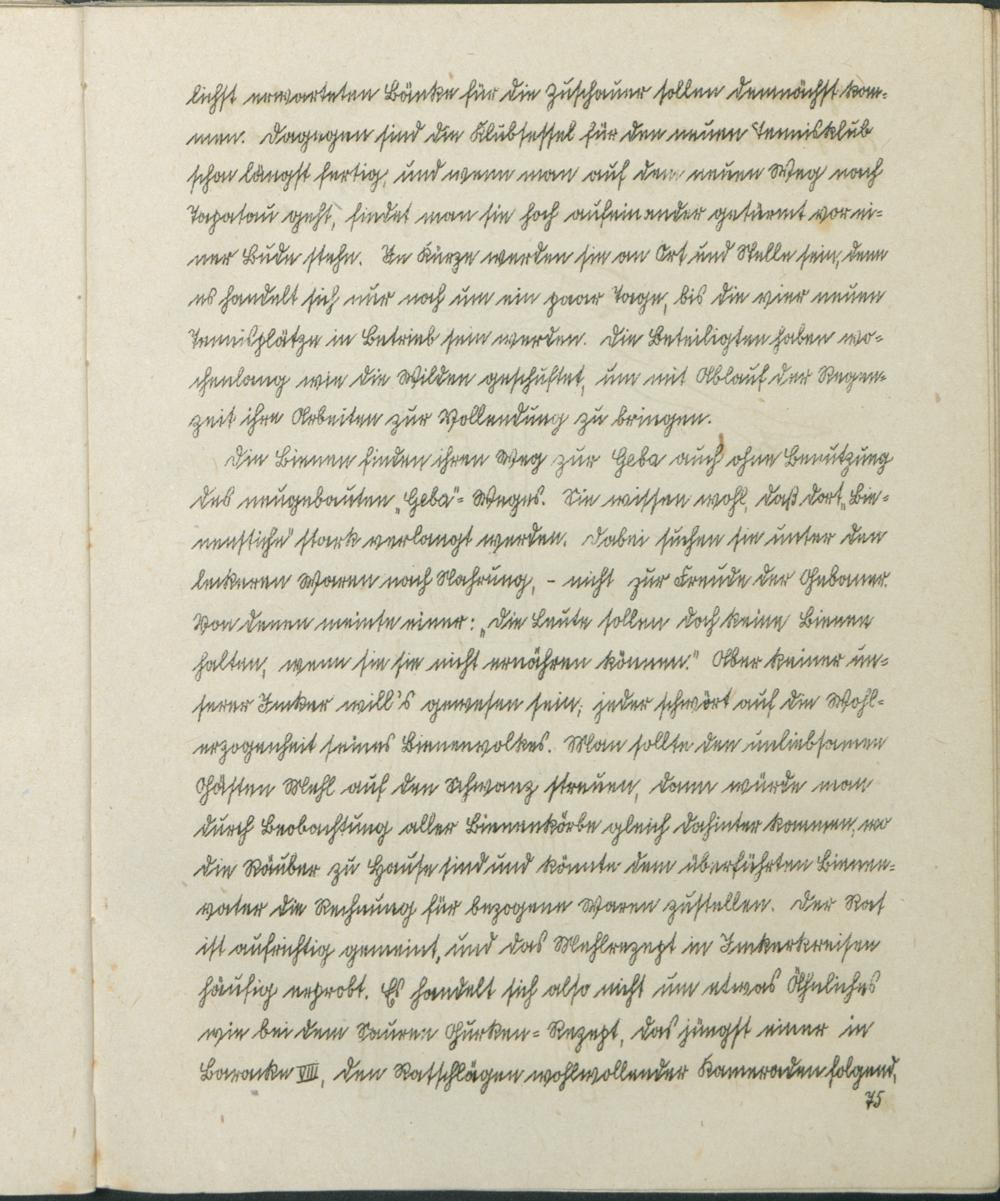 lichst erwarteten Bänke für die Zuschauer sollen demnächst kom-
men. Dagegen sind die Klubsessel für den neuen Tennisklub
schon längst fertig, und wenn man auf dem neuen Weg nach
Tapatau geht, findet man sie hoch aufeinander getürmt vor ei-
ner Bude stehn. In Kürze werden sie an Ort und Stelle sein, denn
es handelt sich nur noch um ein paar Tage, bis die vier neuen
Tennisplätze in Betrieb sein werden. Die Beteiligten haben wo-
chenlang wie die Wilden geschuftet, um mit Ablauf der Regen-
zeit ihre Arbeiten zur Vollendung zu bringen.
Die Bienen finden ihren Weg zur Geba auch ohne Benutzung
des neugebauten „Geba"-Weges. Sie wissen wohl, daß dort „Bie-
nenstiche" stark verlangt werden. Dabei suchen sie unter den
leckeren Waren nach Nahrung, - nicht zur Freude der Gebaner.
Von denen meinte einer: „Die Leute sollen doch keine Bienen
halten, wenn sie sie nicht ernähren können." Aber keiner un-
serer Imker will's gewesen sein; jeder schwört auf die Wohl-
erzogenheit seines Bienenvolkes. Man sollte den unliebsamen
Gästen Mehl auf den Schwanz streuen, dann würde man
durch Beobachtung aller Bienenkörbe gleich dahinter kommen, wo
die Räuber zu Hause sind und könnte dem überführten Bienen-
vater die Rechnung für bezogene Waren zustellen. Der Rat
ist aufrichtig gemeint, und das Mehlrezept in Imkerkreisen
häufig erprobt. Es handelt sich also nicht um etwas Ähnliches
wie bei dem Sauren Gurken-Rezept, das jüngst einer in
Baracke VIII, den Ratschlägen wohlwollender Kameraden folgend,
75